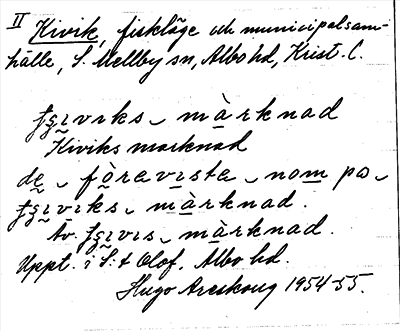 II Kivik, fiskläge och municipalsam-
hälle, S. Mellby sn, Albo hd, Krist. l.
màrknad
Kiviks marknad
de fòravista nom pa
màrknad.
Av màrknad.
Uppt. i S:t Olof, Albo hd.
Hugo Areskoug 1954-55.